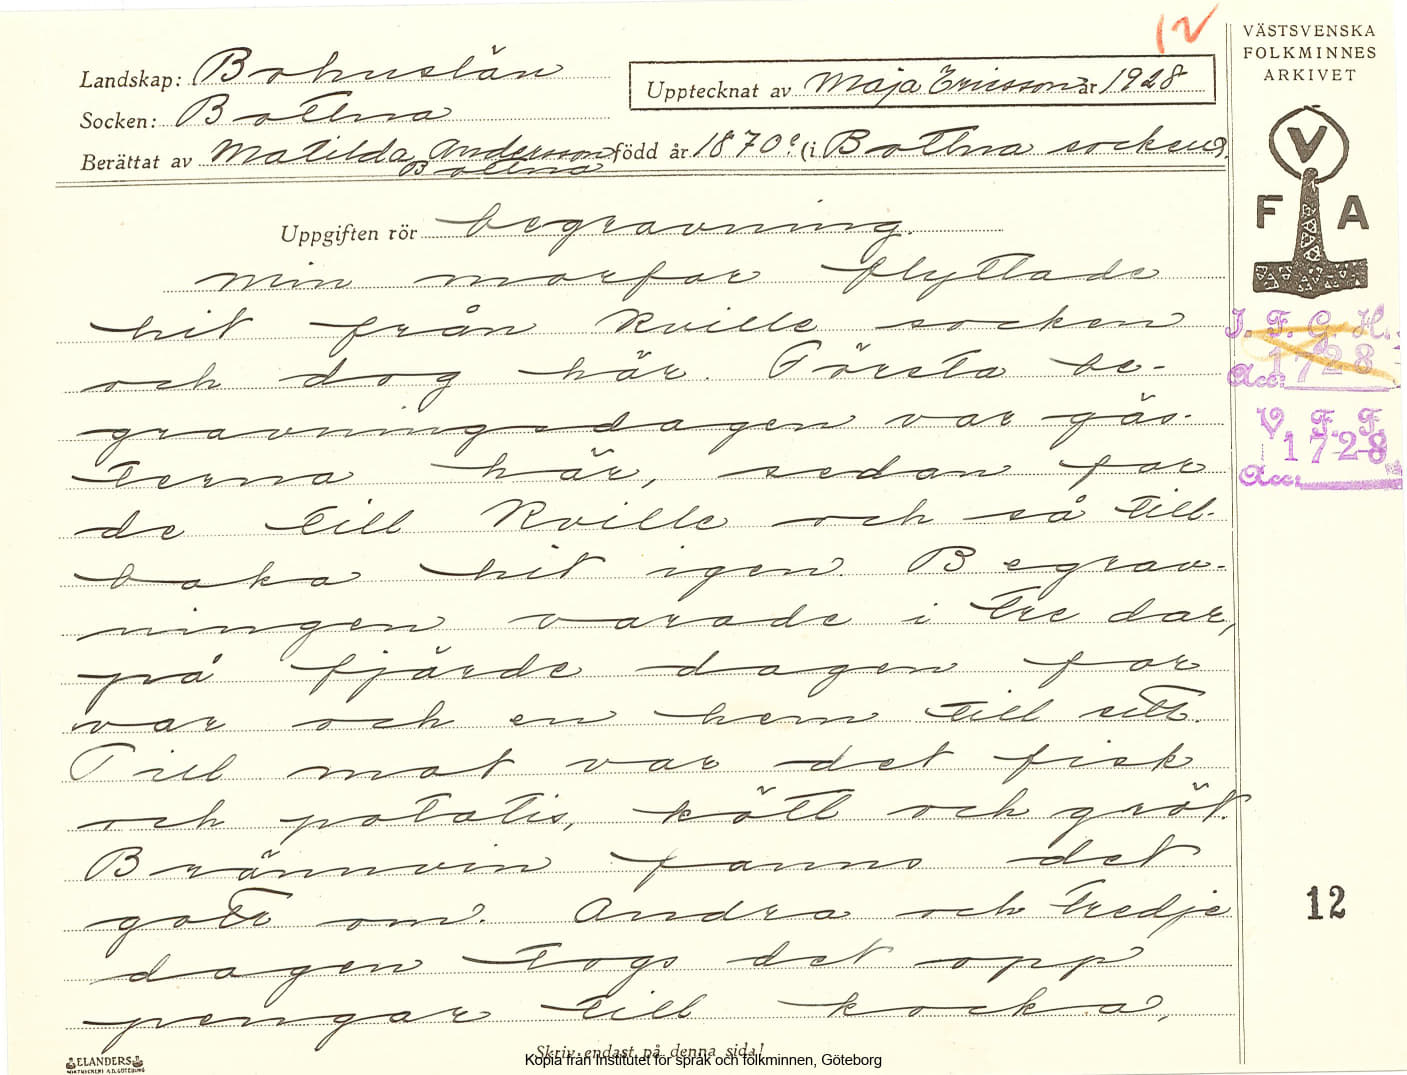 12
VÄSTSVENSKA
FOLKMINNES
ARKIVET
Landskap: Bohuslän
Upptecknat av Maja Ericsson år 1928
Socken: Bottna
Berättat av Matilda Andersson född år 1870? (i Bottna socken).
Bottna
V
F A
Uppgiften rör begravning.
Min morfar flyttade
hit från Kville socken
och dog här. Första be-
gravningsdagen var gäs-
terna här, sedan for
de till Kville och så till-
baka hit igen. Begrav-
ningen varade i tre dar,
på fjärde dagen for
var och en hem till sitt.
Till mat var det fisk
och potatis, kött och gröt.
Brännvin fanns det
gott om. Andra och tredje
dagen togs det opp
pengar till kocka,
I. F. G. H.
Acc: 1728
V. F. F.
Acc: 1728
12
Skriv endast på denna sida!
ELANDERS
Kopia från Institutet för språk och folkminnen, Göteborg